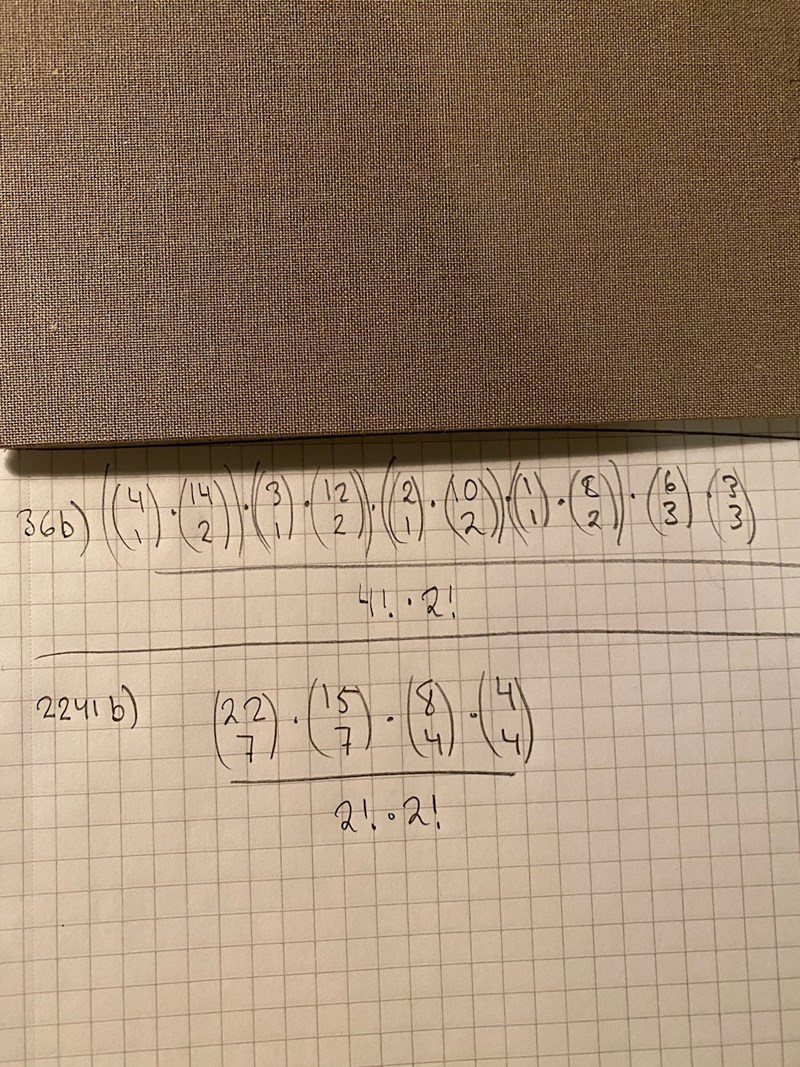 36b) ((4 1)·(14 2))·((3 1)·(12 2))·((2 1)·(10 2))·((1 1)·(8 2))·(6 3)·(3 3)
4!·2!
2241b) (22 7)·(15 7)·(8 4)·(4 4)
2!·2!